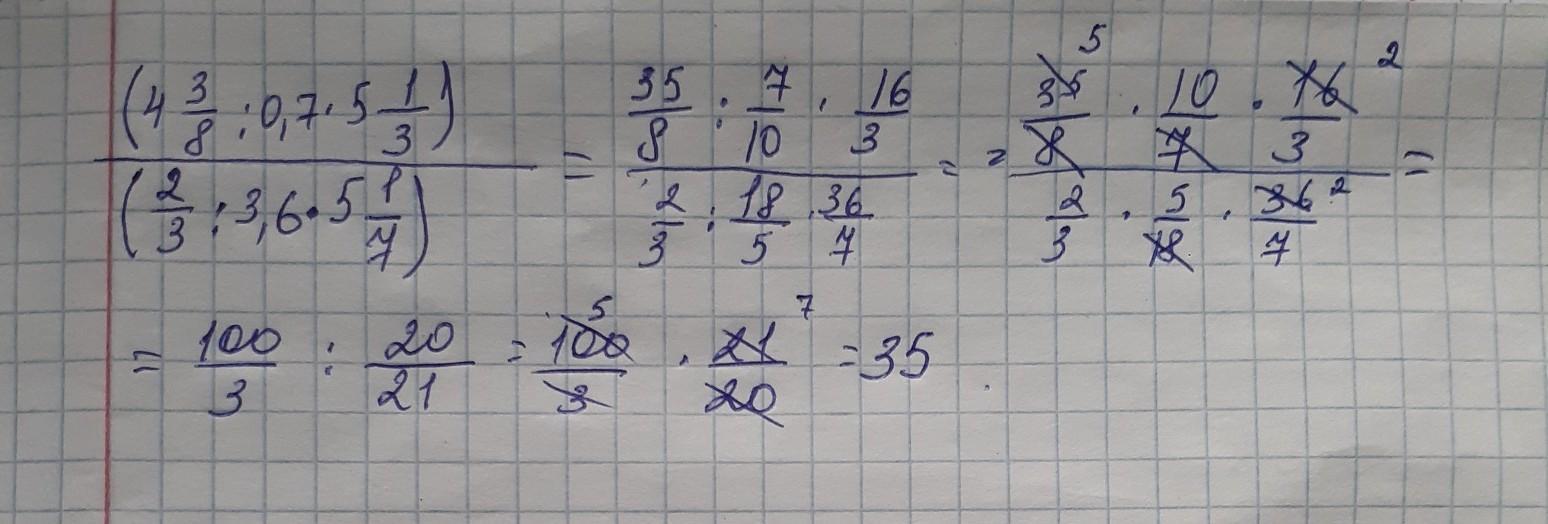 (4 3/8 : 0,7 · 5 1/3) / (2/3 : 3,6 · 5 1/7) = (35/8 : 7/10 · 16/3) / (2/3 : 18/5 · 36/7) = = (35/8 · 10/7 · 16/3) / (2/3 · 5/18 · 36/7) = 5 2 2
= 100/3 : 20/21 = 100/3 · 21/20 = 35 5 7